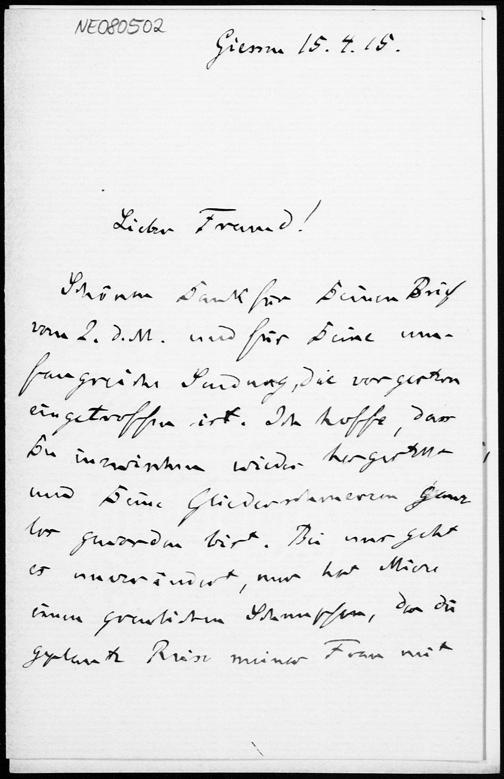 NE080502
Giessen 15. 4. 15.
Lieber Freund!
Schönen Dank für Deinen Brief
vom 2. d. M. und für Deine um-
fangreiche Sendung, die vorgestern
eingetroffen ist. Ich hoffe, dass
Du inzwischen wieder hergestellt
und Deine Gliederschmerzen ganz
los geworden bist. Bei uns geht
es unverändert, nur hat
einen greulichen Schnupfen, der die
geplante Reise meiner Frau mit